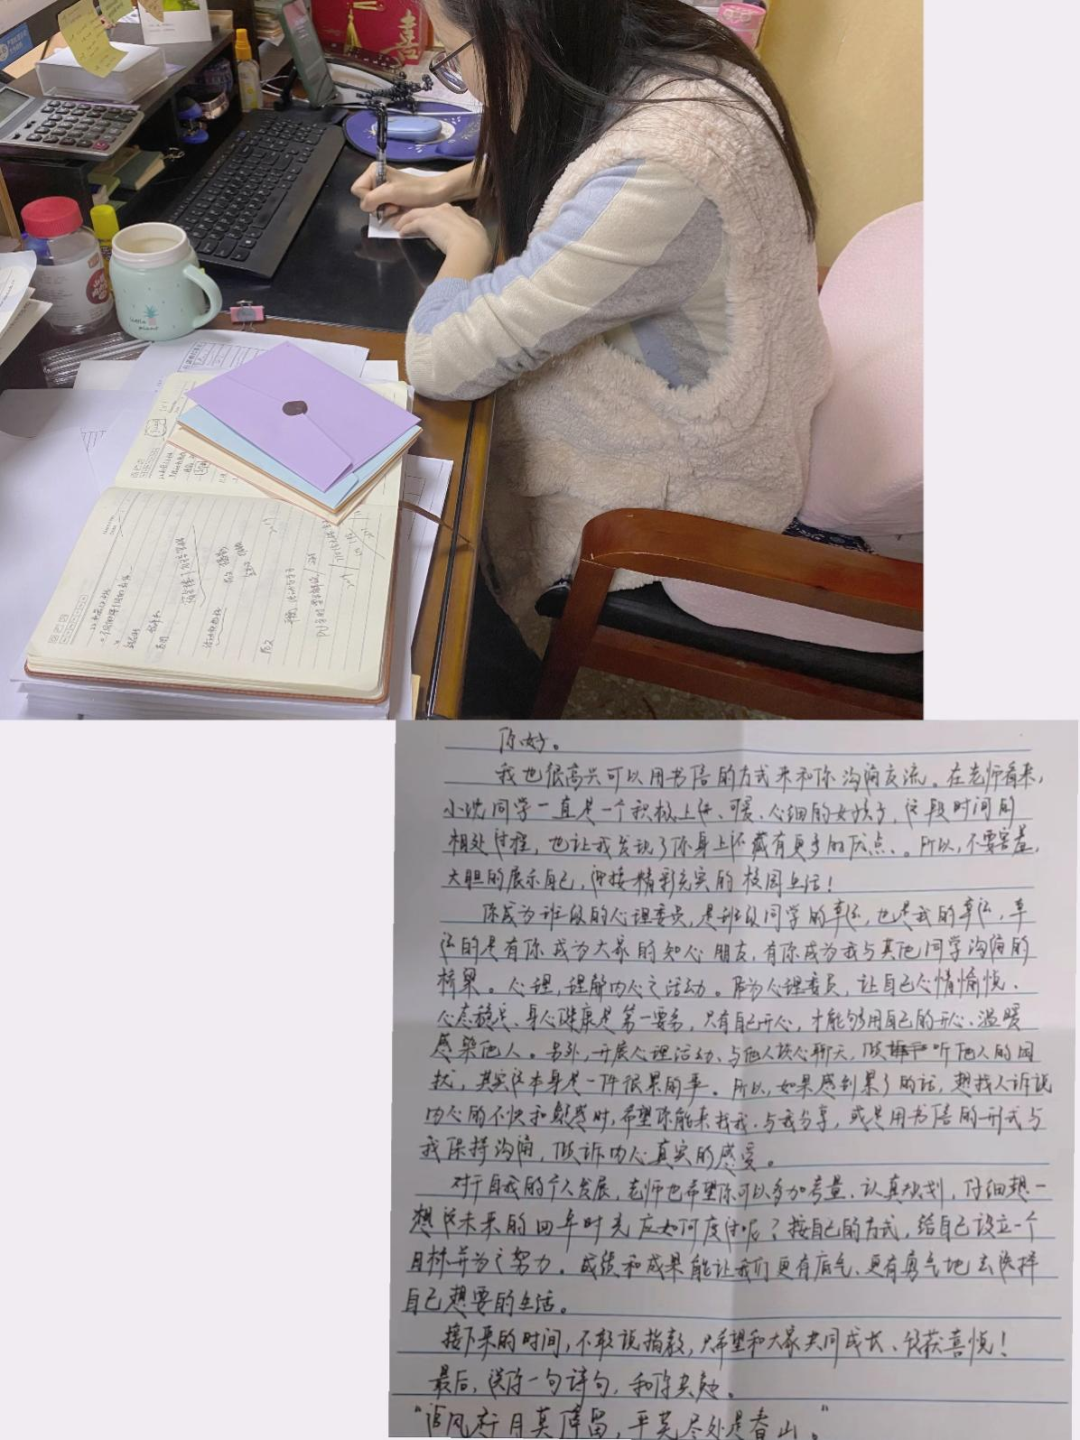 你好。
我也很高兴可以用书信的方式来和你沟通交流。在老师看来，
同学一直是一个积极上进、可爱、心细的女孩子，这段时间的
相处过程，也让我发现了你身上还藏有更多的优点、。所以，不要害羞，
大胆的展示自己，迎接精彩充实的校园生活！
你成为班级的心理委员，是班级同学的幸运，也是我的幸运，幸
运的是有你成为大家的知心朋友，有你成为我与其他同学沟通的
桥梁。心理，理解内心之活动。成为心理委员，让自己心情愉悦、
心态稳定、身心健康是第一要务，只有自己开心，才能够用自己的开心、温暖
感染他人。另外，开展心理活动、与他人谈心聊天，倾听他人的困
扰，其实这本身是一件很累的事。所以，如果感到累了的话，想找人诉说
内心的不快和疑惑时，希望你能来找我、与我分享，或是用书信的形式与
我保持沟通，倾诉内心真实的感受。
对于自我的个人发展，老师也希望你可以多加考量、认真规划，仔细想一
想这未来的四年时光应如何度过呢？按自己的方式，给自己设立一个
目标并为之努力。成绩和成果能让我们更有底气、更有勇气地去选择
自己想要的生活。
接下来的时间，不敢说指教，只希望和大家共同成长、收获喜悦！
最后，送你一句诗句，和你共勉。
“追风赶月莫停留，平芜尽处是春山。”